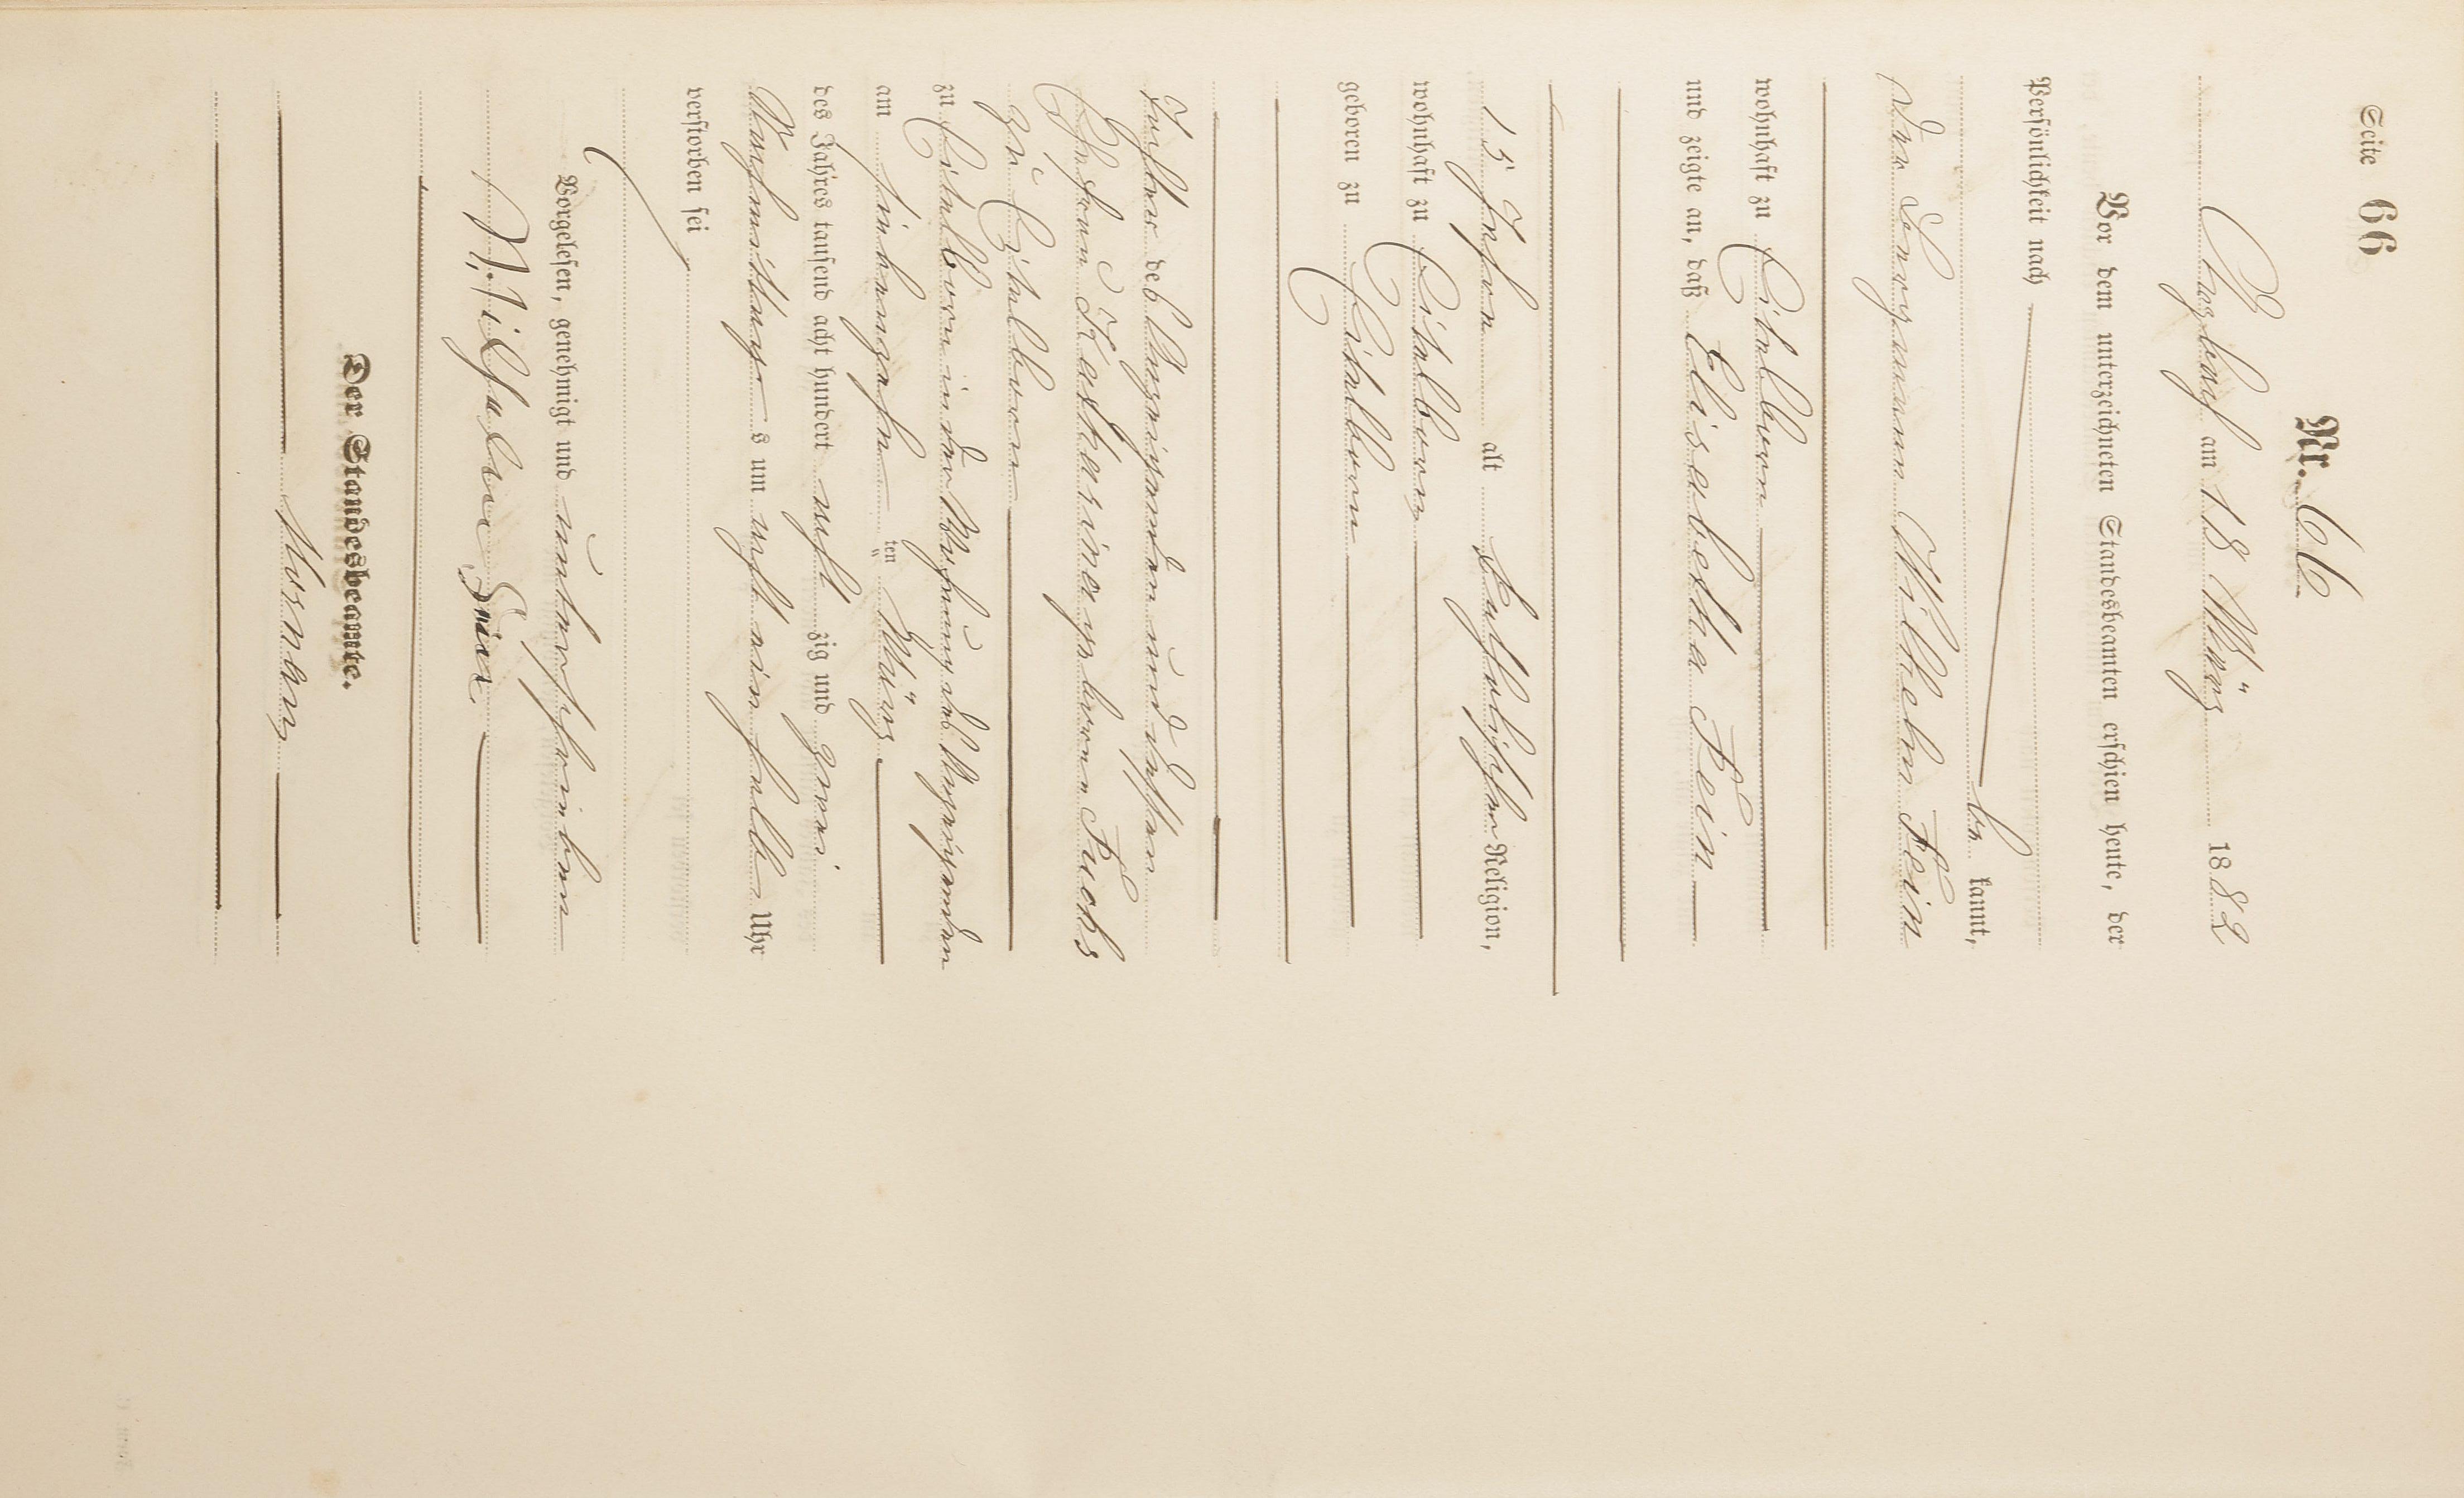 Seite 66
Nr. 66.
am 18 März 1882
Vor dem unterzeichneten Standesbeamten erschien heute, der
Persönlichkeit nach
be kannt,
der Bergmann Wilhelm Fein
wohnhaft zu Eitelborn
und zeigte an, daß Elisabetha Fein
15 Jahre alt katholischer Religion,
wohnhaft zu Eitelborn
geboren zu Eitelborn
Tochter des Anzeigenden und dessen
Ehefrau Katharina geborene Fuchs
zu Eitelborn
zu Eitelborn in der Wohnung des Anzeigenden
am siebenzehn ten März
des Jahres tausend acht hundert acht zig und zwei
Nachmittags um acht ein halb Uhr
verstorben sei
Vorgelesen, genehmigt und unterschrieben
Wilhelm Fein
Der Standesbeamte.